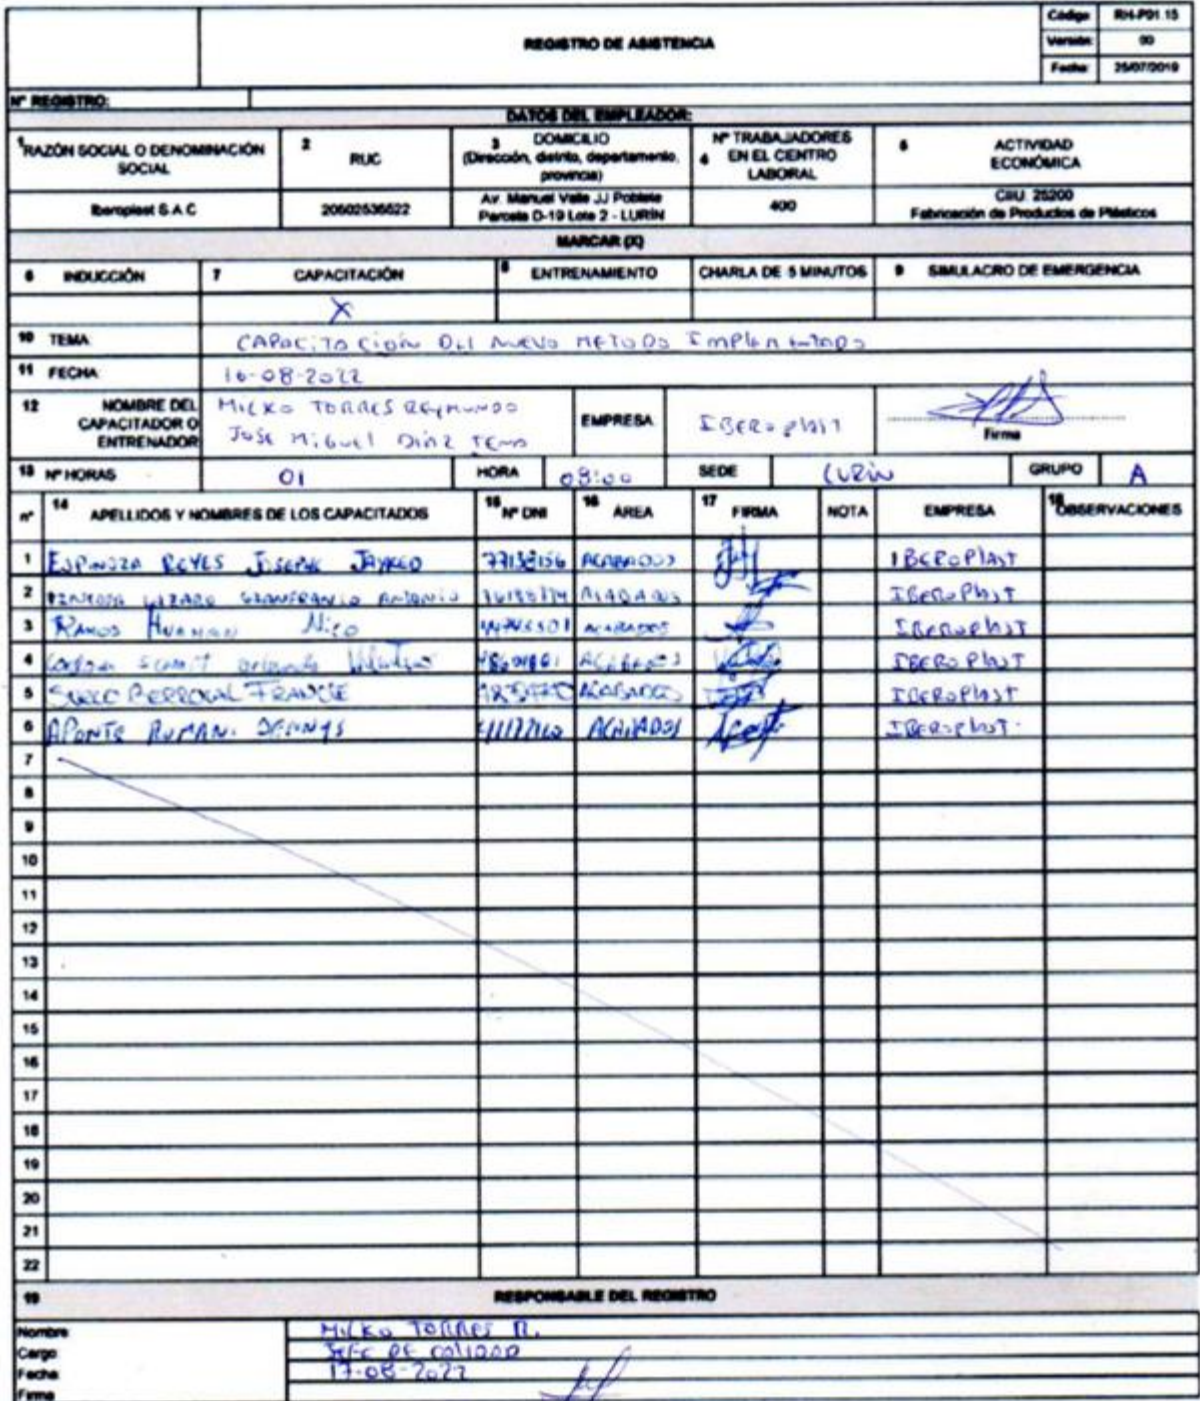 REGISTRO DE ASISTENCIA
Código RH-P01.15
Versión: 00
Fecha: 25/07/2019
N° REGISTRO:
DATOS DEL EMPLEADOR:
1 RAZÓN SOCIAL O DENOMINACIÓN SOCIAL
2 RUC
3 DOMICILIO (Dirección, distrito, departamento, provincia)
4 N° TRABAJADORES EN EL CENTRO LABORAL
5 ACTIVIDAD ECONÓMICA
Iberoplast S.A.C
20602535522
Av. Manuel Valle JJ Poblete Parcela D-19 Lote 2 - LURÍN
400
CIIU. 25200 Fabricación de Productos de Plásticos
MARCAR (X)
6 INDUCCIÓN 7 CAPACITACIÓN 8 ENTRENAMIENTO CHARLA DE 5 MINUTOS 9 SIMULACRO DE EMERGENCIA
X
10 TEMA CAPACITACIÓN DEL NUEVO METODO IMPLEMENTADO
11 FECHA: 16-08-2022
12 NOMBRE DEL CAPACITADOR O ENTRENADOR
MILKO TORRES REYMUNDO
JOSE MIGUEL DIAZ
EMPRESA IBEROPLAST
Firma
13 N° HORAS 01 HORA 08:00 SEDE LURIN GRUPO A
n° 14 APELLIDOS Y NOMBRES DE LOS CAPACITADOS 15 N° DNI 16 ÁREA 17 FIRMA NOTA EMPRESA 18 OBSERVACIONES
1 ESPINOZA REYES ACABADOS IBEROPLAST
2 GIANFRANCO ANTONIO ACABADOS IBEROPLAST
3 RAMOS HUAMAN Nico ACABADOS IBEROPLAST
4 ACABADOS IBEROPLAST
5 BERROCAL ACABADOS IBEROPLAST
6 APONTE ACABADOS IBEROPLAST
7
8
9
10
11
12
13
14
15
16
17
18
19
20
21
22
19 RESPONSABLE DEL REGISTRO
Nombre MILKO TORRES R.
Cargo: JEFE DE CALIDAD
Fecha 17-08-2022
Firma